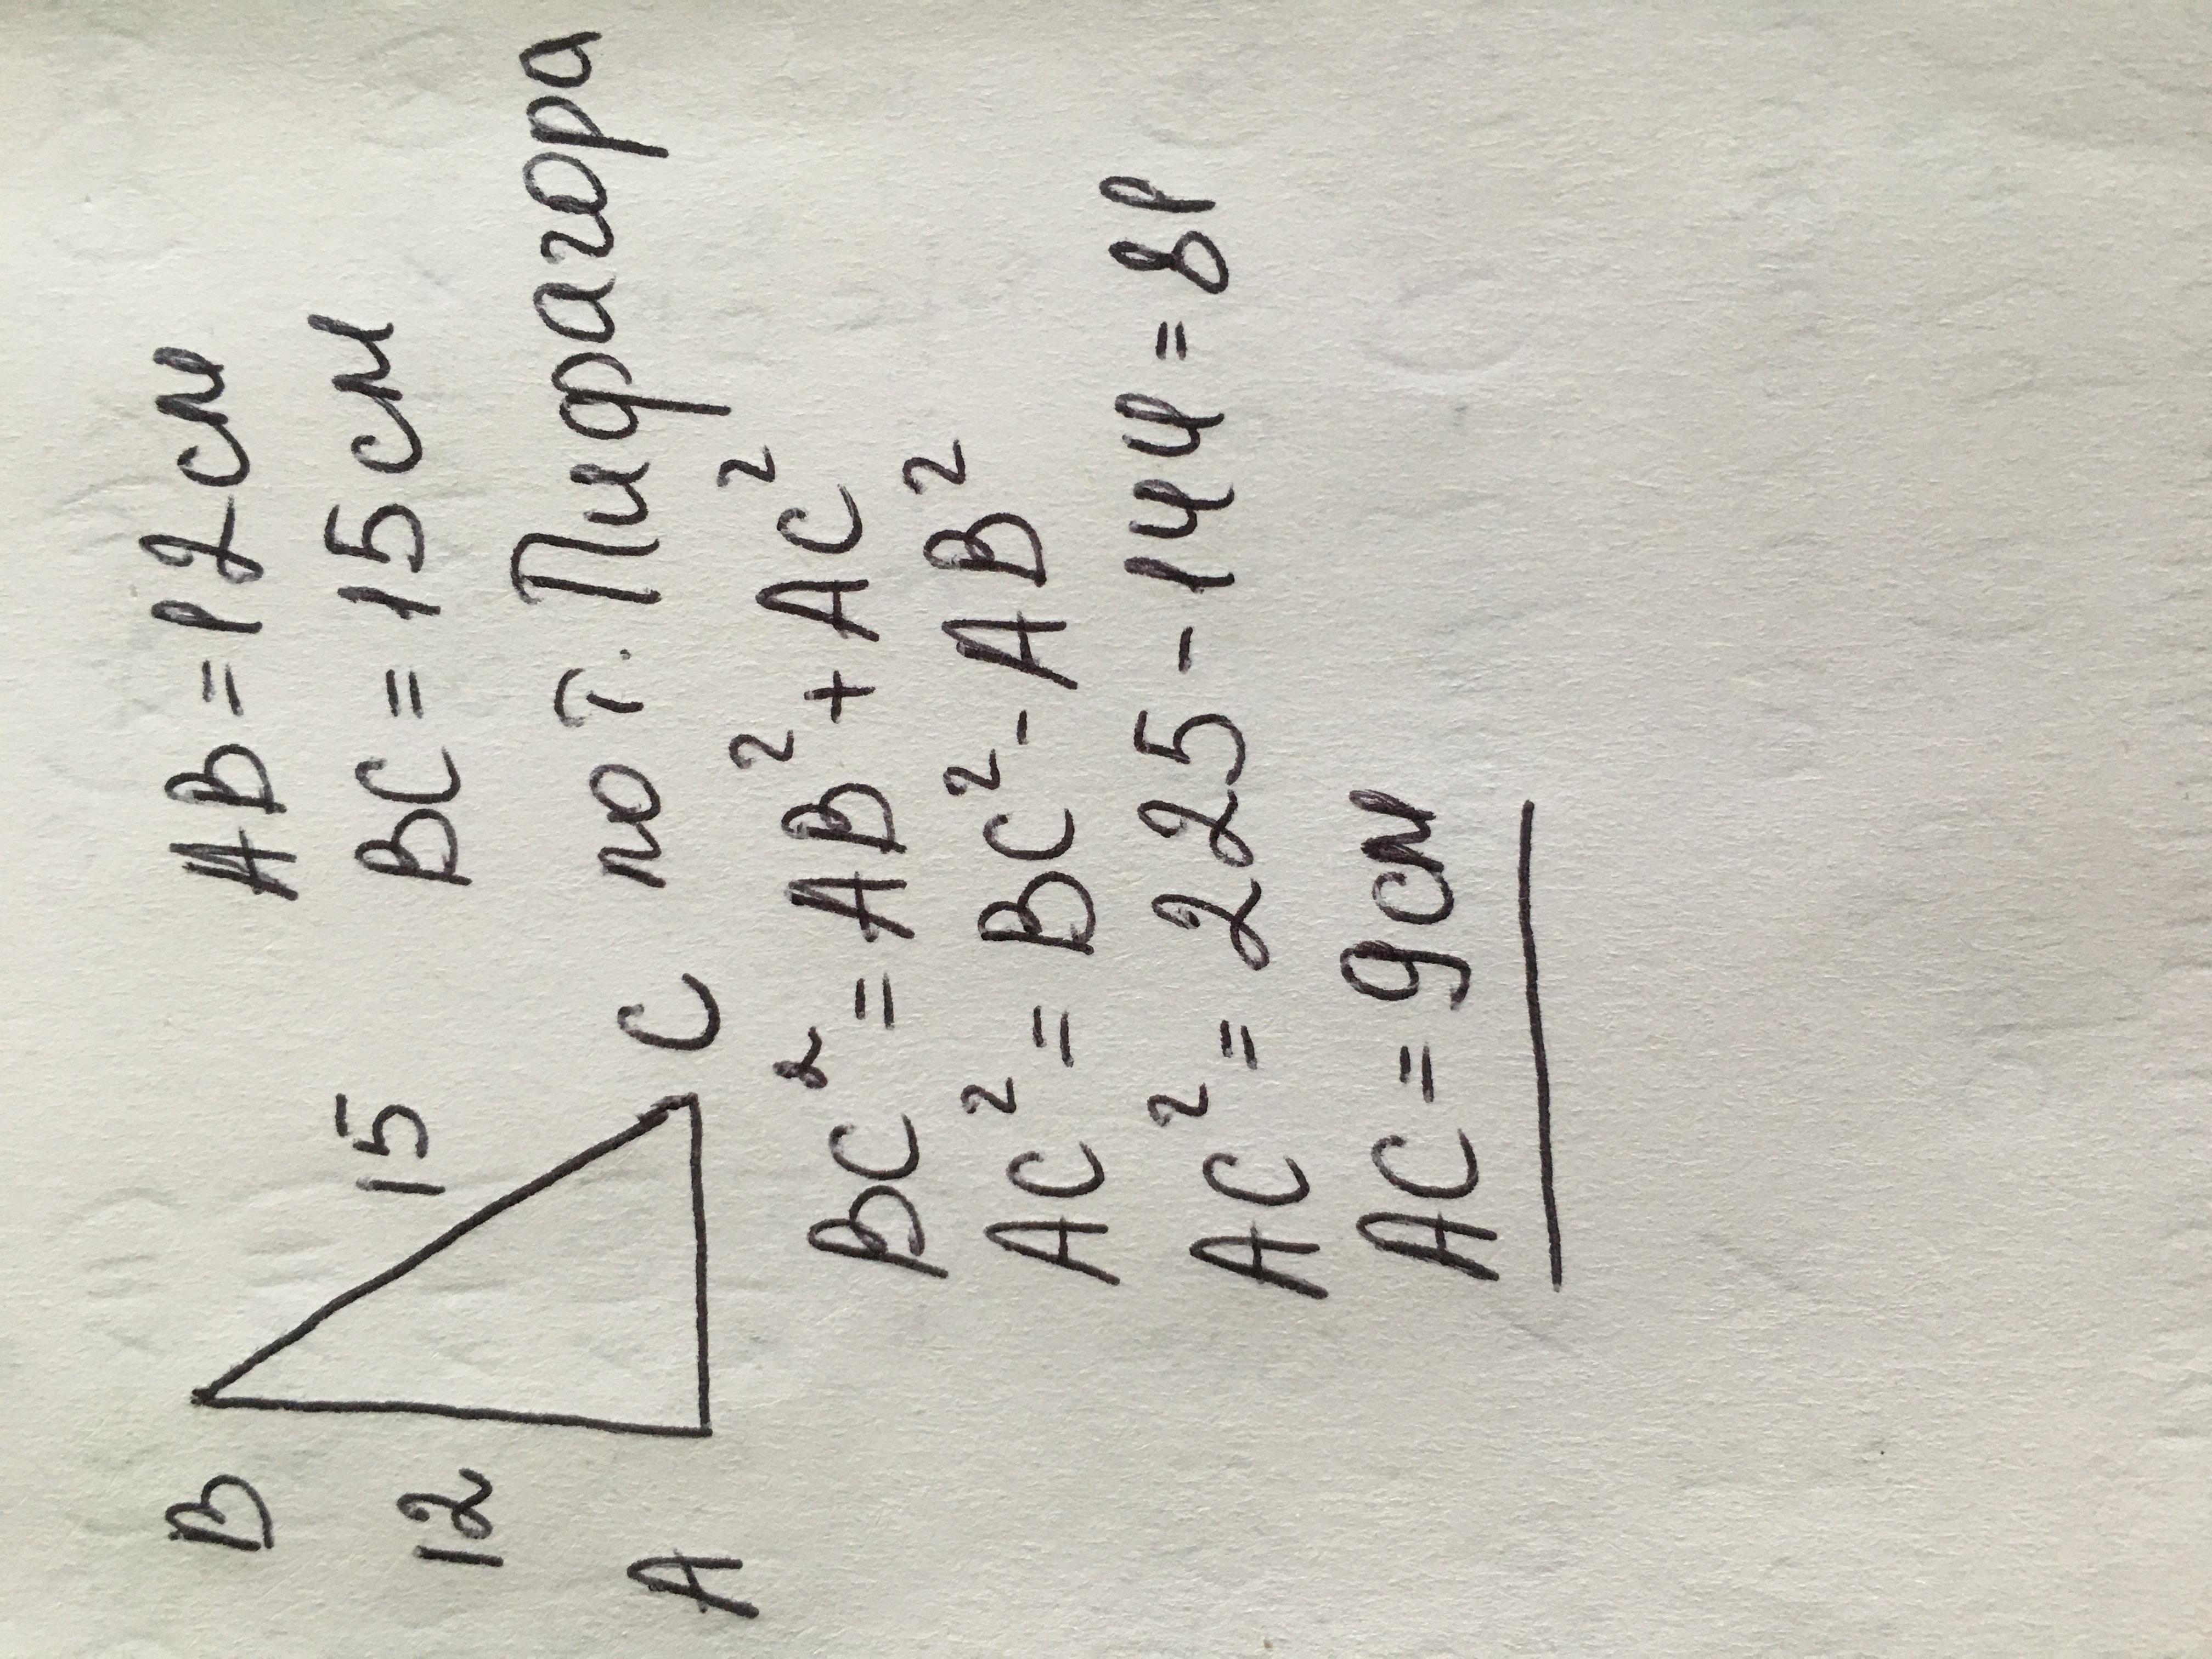 B
12
A
15
C
AB = 12 см
BC = 15 см
по т. Пифагора
BC² = AB² + AC²
AC² = BC² - AB²
AC² = 225 - 144 = 81
AC = 9 см